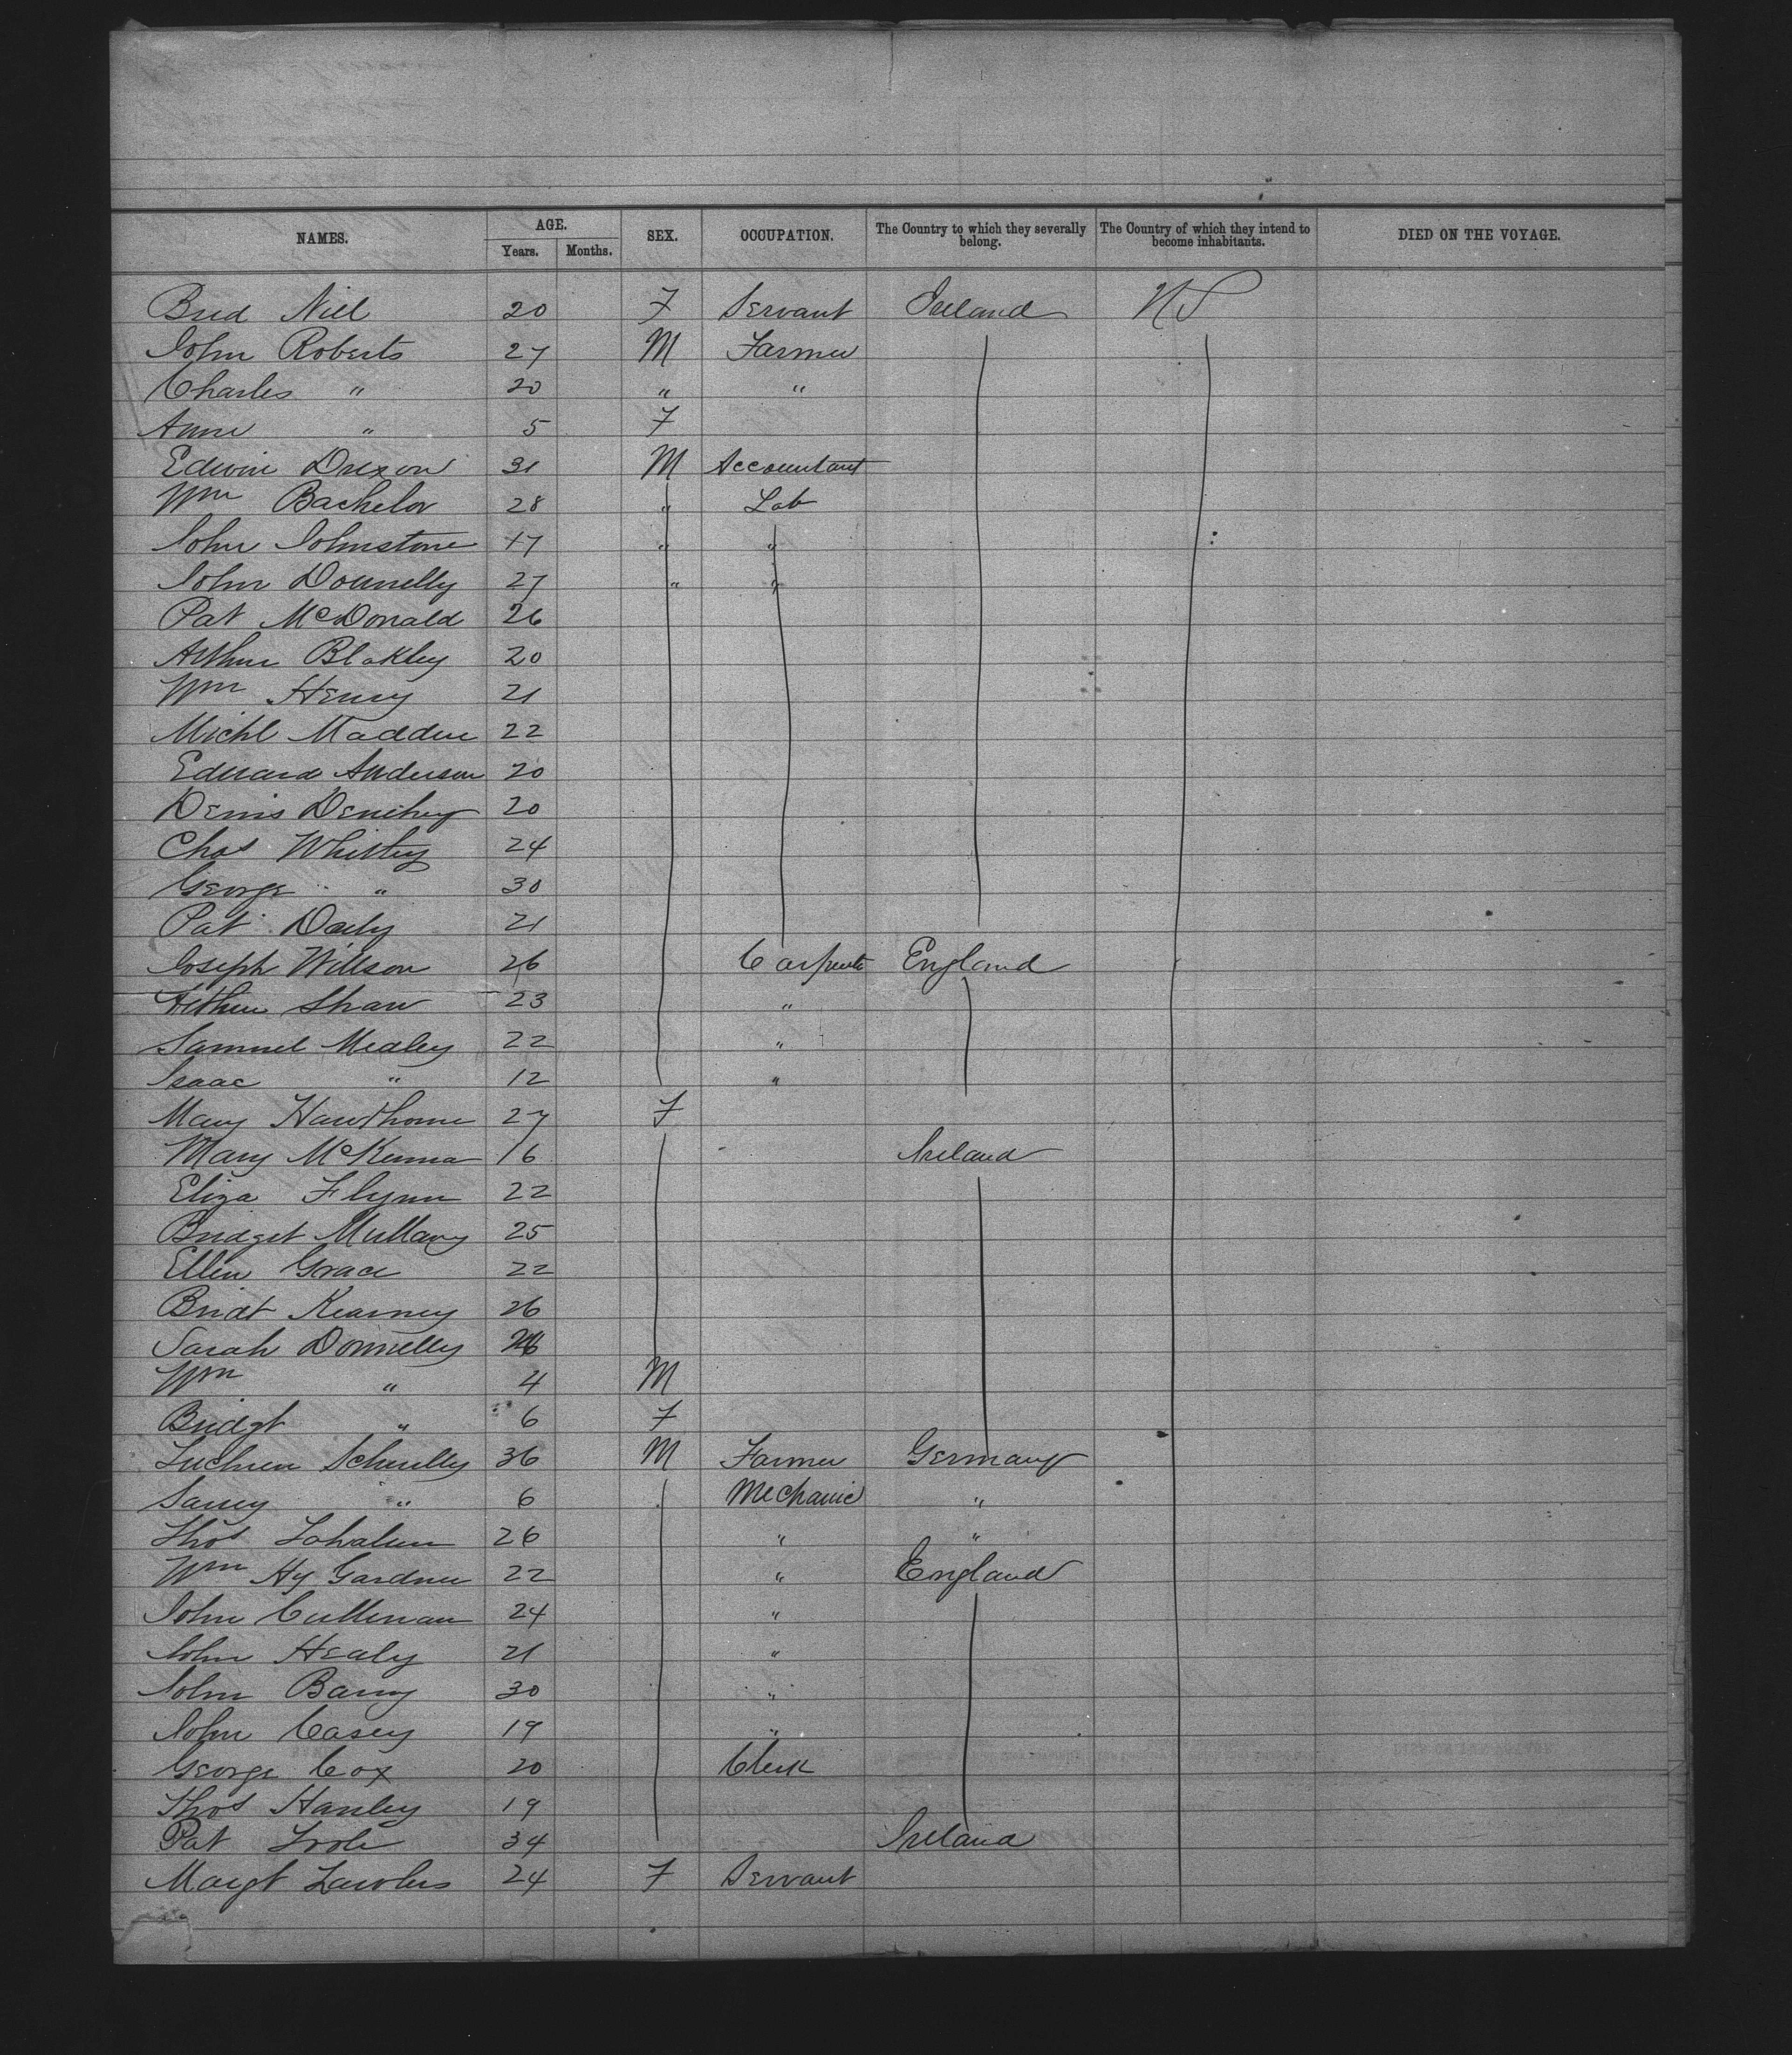 NAMES. AGE. SEX. OCCUPATION. The Country to which they severally belong. The Country of which they intend to become inhabitants. DIED ON THE VOYAGE.
Years. Months.
Brid Niel 20 F Servant Ireland US
John Roberts 27 M Farmer
Charles " 20 " "
Anne " 5 F
Edwin Dixon 31 M Accountant
Wm Bachelor 28 " Lab
John Johnstone 17 " "
John Donnelly 27 " "
Pat McDonald 26
Arthur Blakley 20
Wm Henry 21
Michl Madden 22
Edward Anderson 20
Denis Denehy 20
Chas Whistey 24
George " 30
Pat Daily 21
Joseph Willson 26 Carpente England
Arthur Shaw 23 "
Samuel Medley 22 "
Isaac " 12 "
Mary Hawthorne 27 F
Mary McKenna 16 Ireland
Eliza Flynn 22
Bridget Mullany 25
Ellen Grace 22
Bridt Kearney 26
Sarah Donnelly
Wm " 4 M
Bridgt " 6 F
36 M Farmer Germany
" 6 Mechanic "
Thos 26 " "
Wm Hy Gardner 22 " England
John Cullinan 24 "
John Healy 21 "
John Barry 30 "
John Casey 19 "
George Cox 20 Clerk
Thos Hanley 19
Pat 34 Ireland
Margt Lawlers 24 F Servant